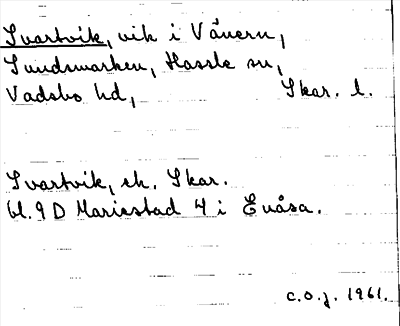 Svartvik, vik i Vänern,
Sundsmarken, Hassle sn,
Vadsbo hd, Skar. l.
Svartvik, ek. Skar.
bl. 9 D Mariestad 4 i Enåsa.
C.O.J. 1961.